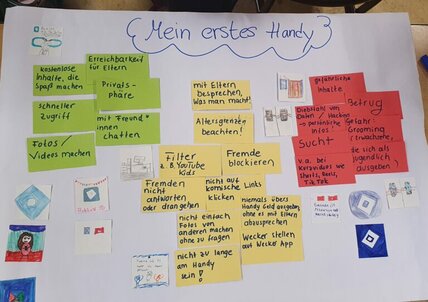 Mein erstes Handy
kostenlose
Inhalte, die
Spaß machen
Erreichbarkeit
für Eltern
schneller
Zugriff
Privats-
phäre
Fotos /
Videos machen
mit Freund*
innen
chatten
mit Eltern
besprechen,
Was man macht!
Altersgrenze
beachten!
Filter
z.B. YouTube
Kids
Fremde
blockieren
Fremden
nicht
antworten
oder drangehen
nicht auf
komische Links
klicken
nicht einfach
Fotos von
anderen machen
ohne zu fragen
niemals übers
Handy Geld ausgeben
ohne es mit Eltern
abzusprechen
Wecker stellen
auf Wecker App
nicht zu lange
am Handy
sein!
gefährliche
Inhalte
Diebstahl von
Daten / Hacken
persönliche
Infos!
Betrug
Gefahr:
Grooming
(Erwachsene,
die sich als
jugendlich
ausgeben)
Sucht
v.a. bei
Kurzvideos wie
Shorts, Reels,
TikTok